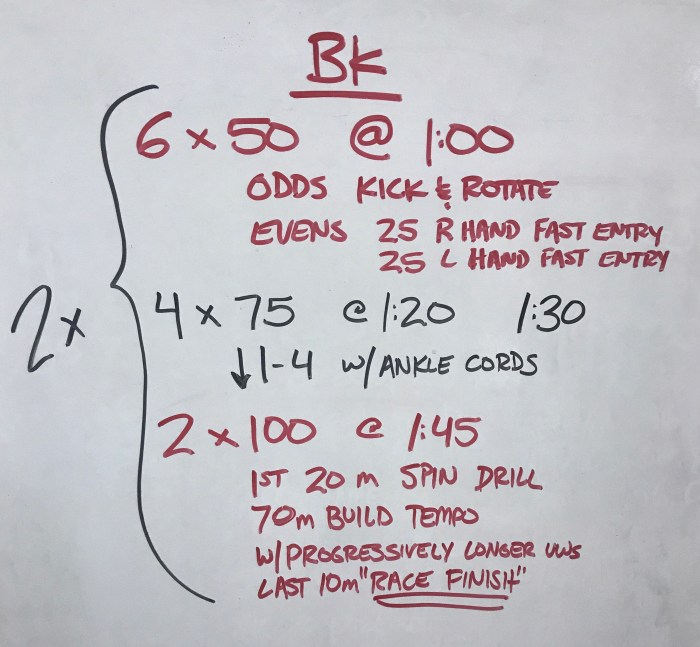 BK
6 x 50 @ 1:00
ODDS KICK & ROTATE
EVENS 25 R HAND FAST ENTRY
25 L HAND FAST ENTRY
2x
4 x 75 @ 1:20 1:30
↓1-4 w/ ANKLE CORDS
2 x 100 @ 1:45
1ST 20 m SPIN DRILL
70m BUILD TEMPO
w/PROGRESSIVELY LONGER UWS
LAST 10m "RACE FINISH"